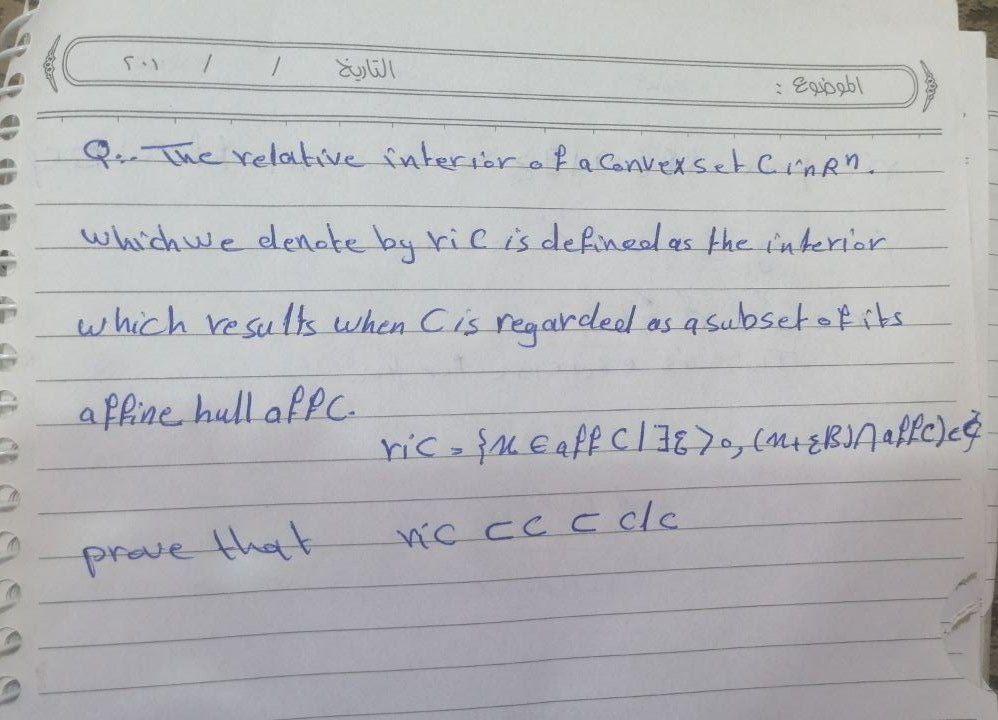 التاريخ / / ٢٠١
الموضوع :
Q.. The relative interior of a convex set C in Rⁿ.
which we denote by ri C is defined as the interior
which results when C is regarded as a subset of its
affine hull aff C.
ri C = {x ∈ aff C | ∃ε > 0, (x + εB) ∩ aff C) ⊂ C}
prove that ri C ⊂ C ⊂ cl C